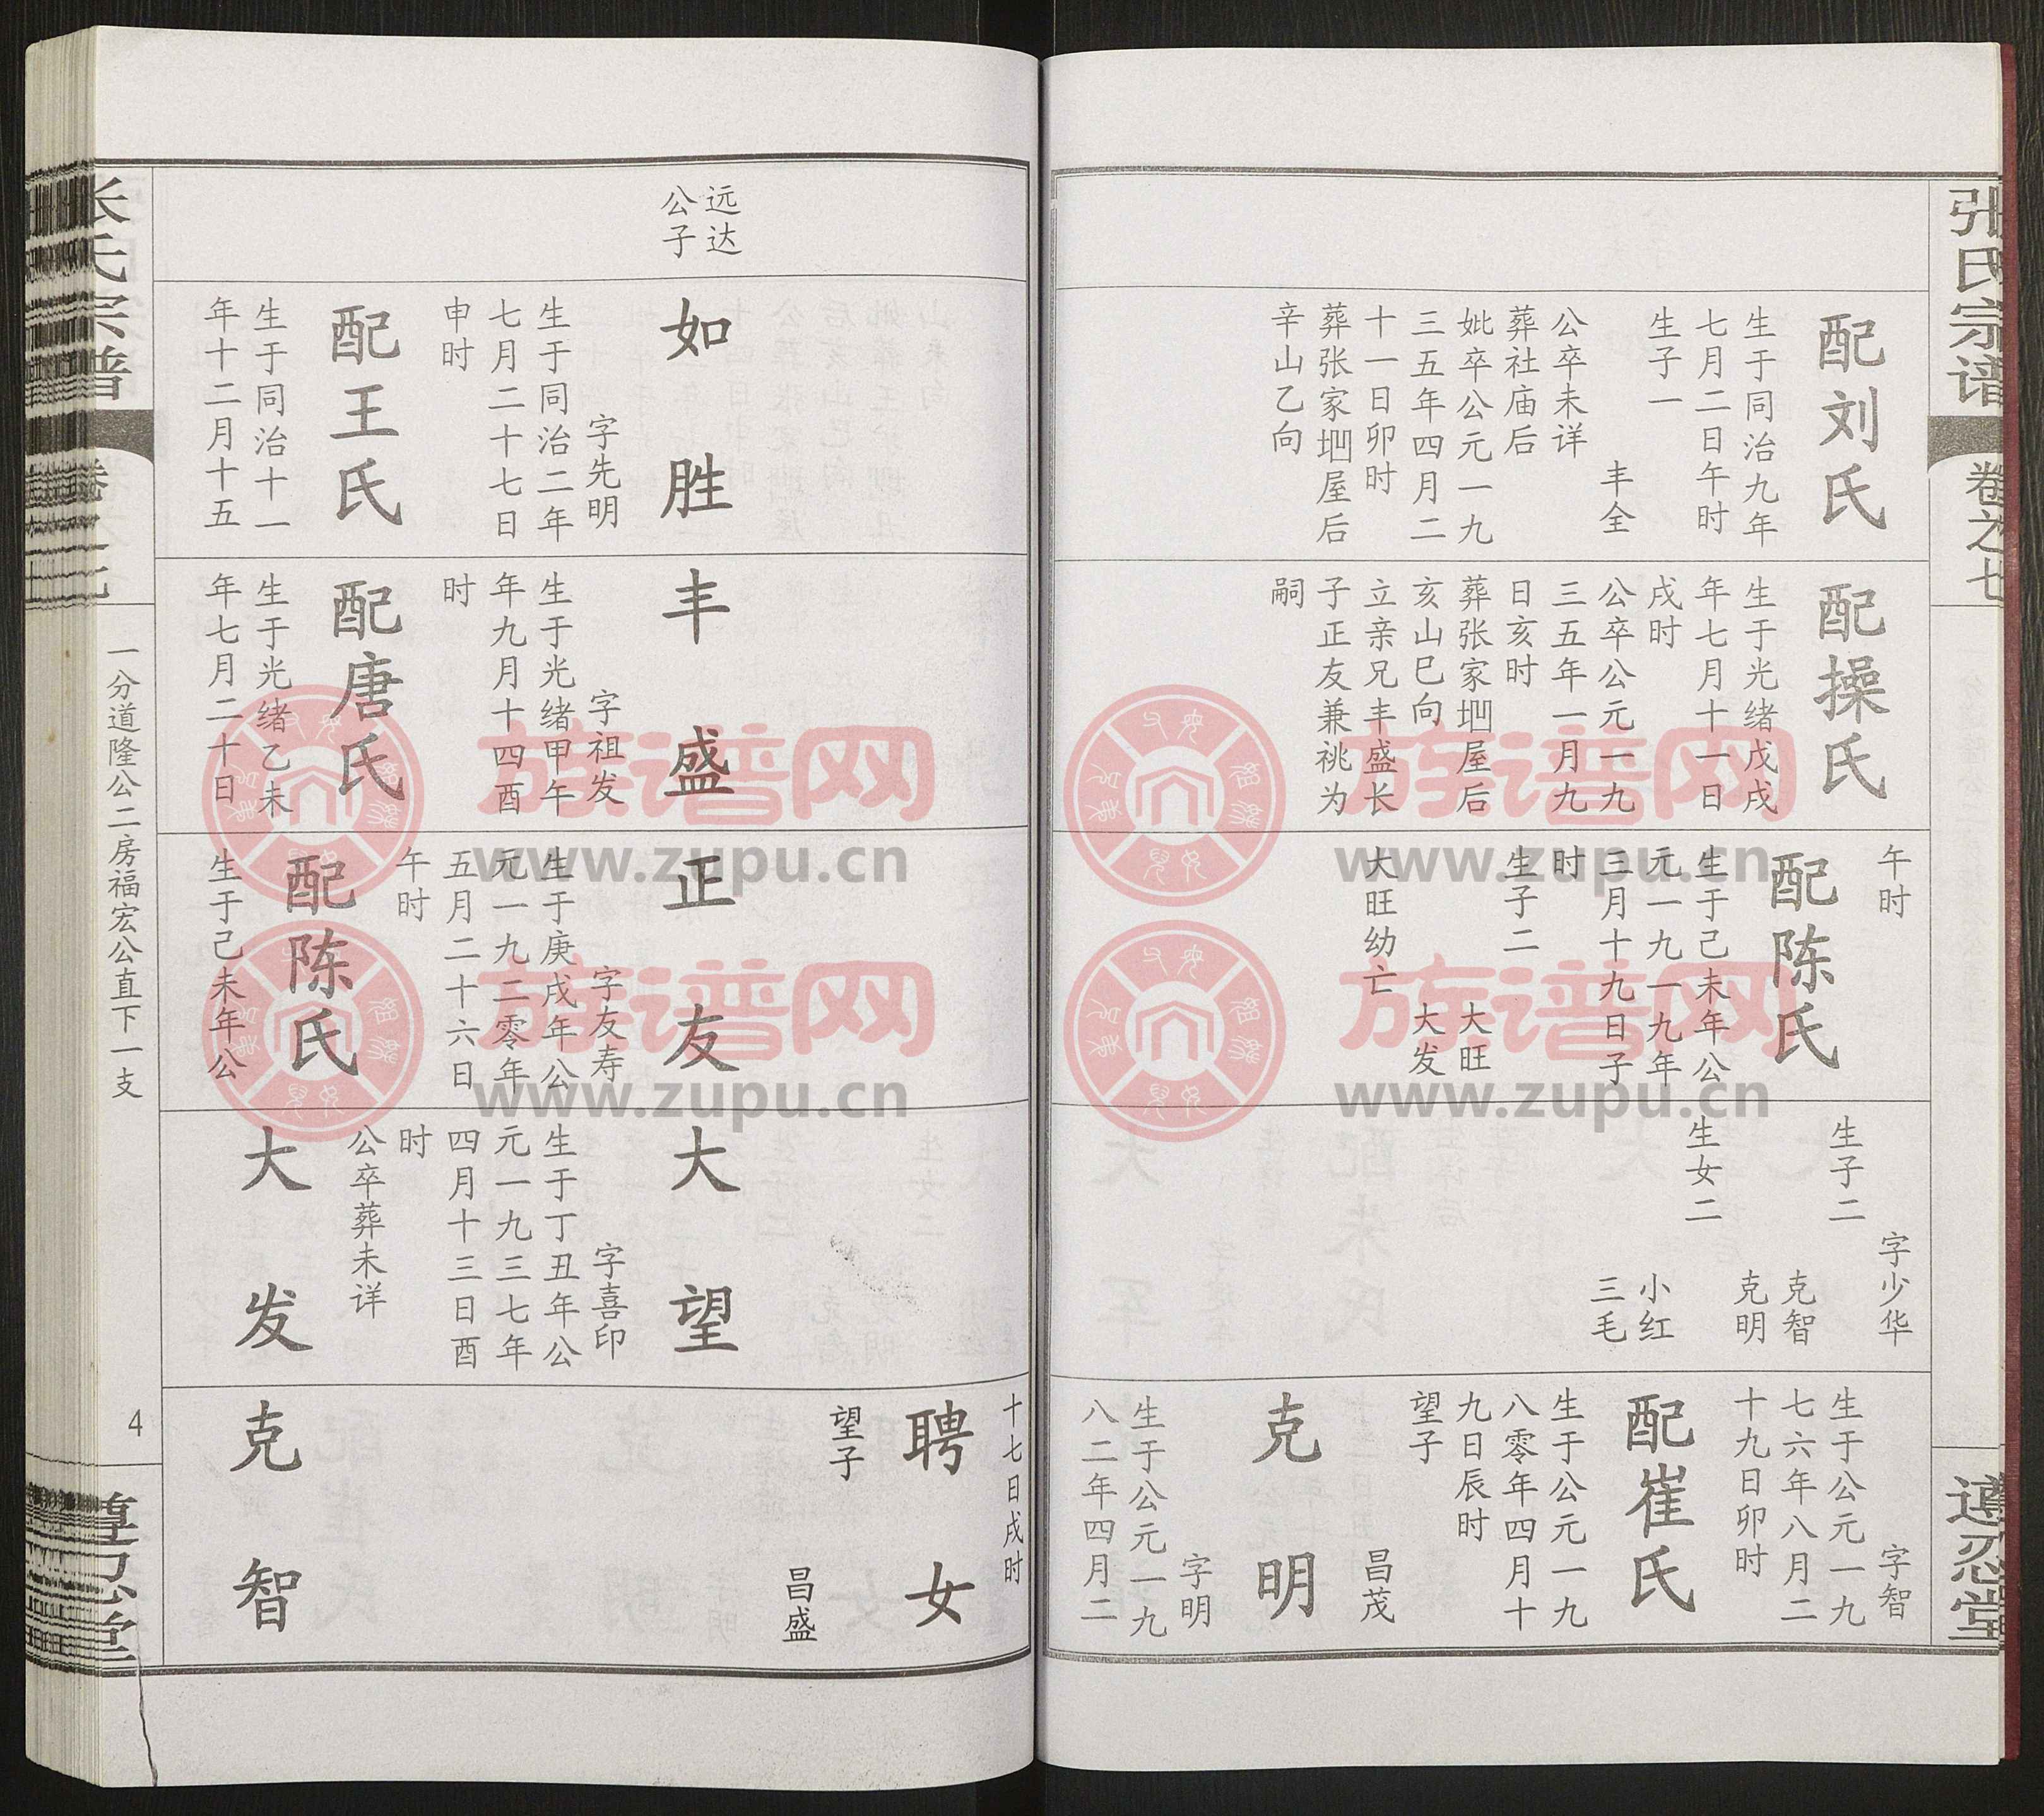 张氏宗谱
卷之七
遵忍堂
配刘氏
生于同治九年
七月二日午时
生子一
丰全
公卒未详
葬社庙后
妣卒公元一九
三五年四月二
十一日卯时
葬张家坳屋后
辛山乙向
配操氏
生于光绪戊戌
年七月十一日
戌时
公卒公元一九
三五年一月九
日亥时
葬张家坳屋后
亥山巳向
立亲兄丰盛长
子正友兼祧为
嗣
午时
配陈氏
生于己未年公
元一九一九年
三月十九日子
时
生子二
大旺
大发
大旺幼亡
字少华
生子二
克智
克明
生女二
小红
三毛
字智
生于公元一九
七六年八月二
十九日卯时
配崔氏
生于公元一九
八零年四月十
九日辰时
望子
昌茂
克明
字明
生于公元一九
八二年四月二
远达
公子
如胜
字先明
生于同治二年
七月二十七日
申时
配王氏
生于同治十一
年十二月十五
丰盛
字祖发
生于光绪甲午
年九月十四酉
时
配唐氏
生于光绪乙未
年七月二十日
正友
字友寿
生于庚戌年公
元一九二零年
五月二十六日
午时
配陈氏
生于己未年公
大望
字喜印
生于丁丑年公
元一九三七年
四月十三日酉
时
公卒葬未详
大发
十七日戌时
聘女
望子
昌盛
克智
一分道隆公二房福宏公直下一支
4
族谱网
www.zupu.cn
族谱网
www.zupu.cn
族谱网
www.zupu.cn
族谱网
www.zupu.cn